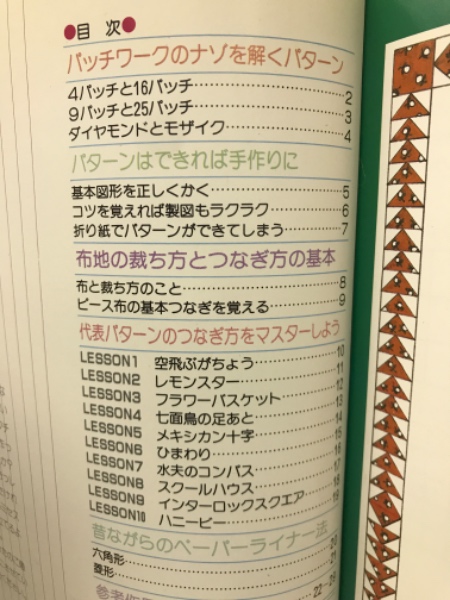 ●目 次●
パッチワークのナゾを解くパターン
4パッチと16パッチ……………………2
9パッチと25パッチ……………………3
ダイヤモンドとモザイク………………4
パターンはできれば手作りに
基本図形を正しくかく…………………5
コツを覚えれば製図もラクラク………6
折り紙でパターンができてしまう……7
布地の裁ち方とつなぎ方の基本
布と裁ち方のこと………………………8
ピース布の基本つなぎを覚える………9
代表パターンのつなぎ方をマスターしよう
LESSON1 空飛ぶがちょう……………10
LESSON2 レモンスター………………11
LESSON3 フラワーバスケット………12
LESSON4 七面鳥の足あと……………13
LESSON5 メキシカン十字……………14
LESSON6 ひまわり……………………15
LESSON7 水夫のコンパス……………16
LESSON8 スクールハウス……………17
LESSON9 インターロックスクエア…18
LESSON10 ハニービー………………19
昔ながらのペーパーライナー法
六角形……………………………………20
菱形………………………………………21